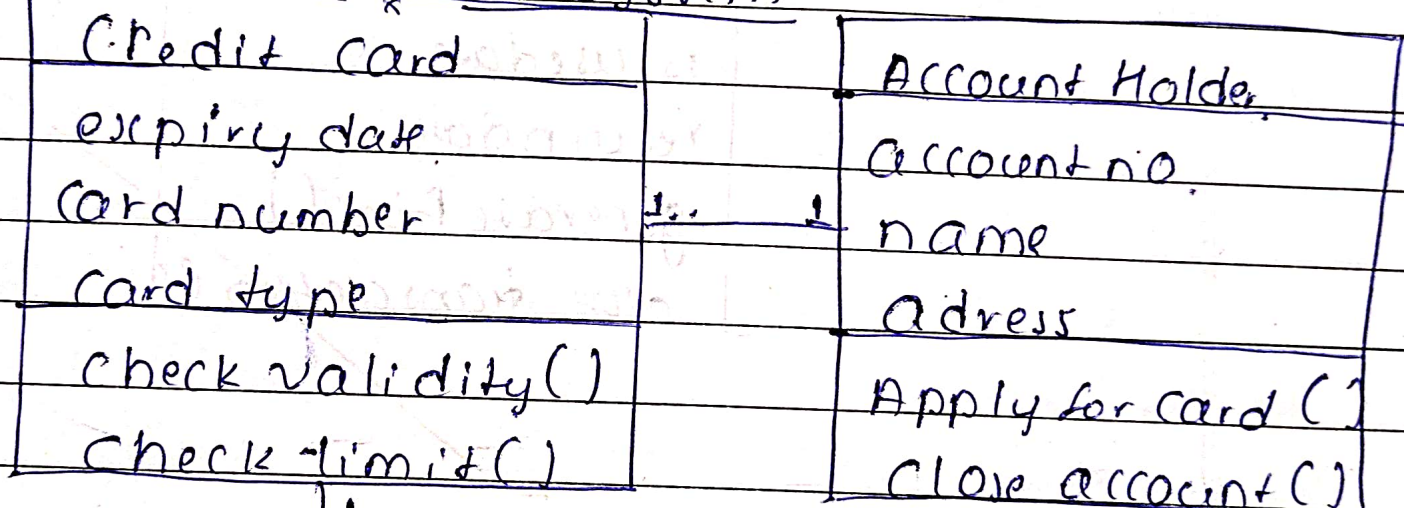 Credit Card
expiry date
Card number
Card type
check validity()
Check limit()
1.. 1
Account Holder
account no.
name
adress
Apply for card ()
Close account ()